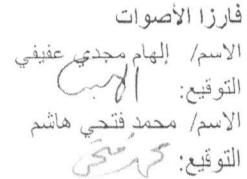 فارزا الأصوات
الاسم/ إلهام مجدي عفيفي
التوقيع:
الاسم/ محمد فتحي هاشم
التوقيع: محمد فتحي